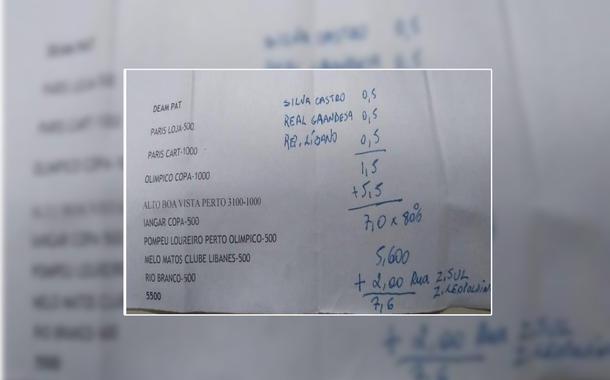 DEAM PAT
PARIS LOJA-500
PARIS CART-1000
OLIMPICO COPA-1000
ALTO BOA VISTA PERTO 3100-1000
IANGAR COPA-500
POMPEU LOUREIRO PERTO OLIMPICO-500
MELO MATOS CLUBE LIBANES-500
RIO BRANCO-500
5500
SILVA CASTRO 0,5
REAL GRANDESA 0,5
REP. LÍBANO 0,5
1,5
+5,5
7,0 x 80%
5,600
+ 2,00 Rua Z. SUL
Z. LEOPOLDIN
7,6